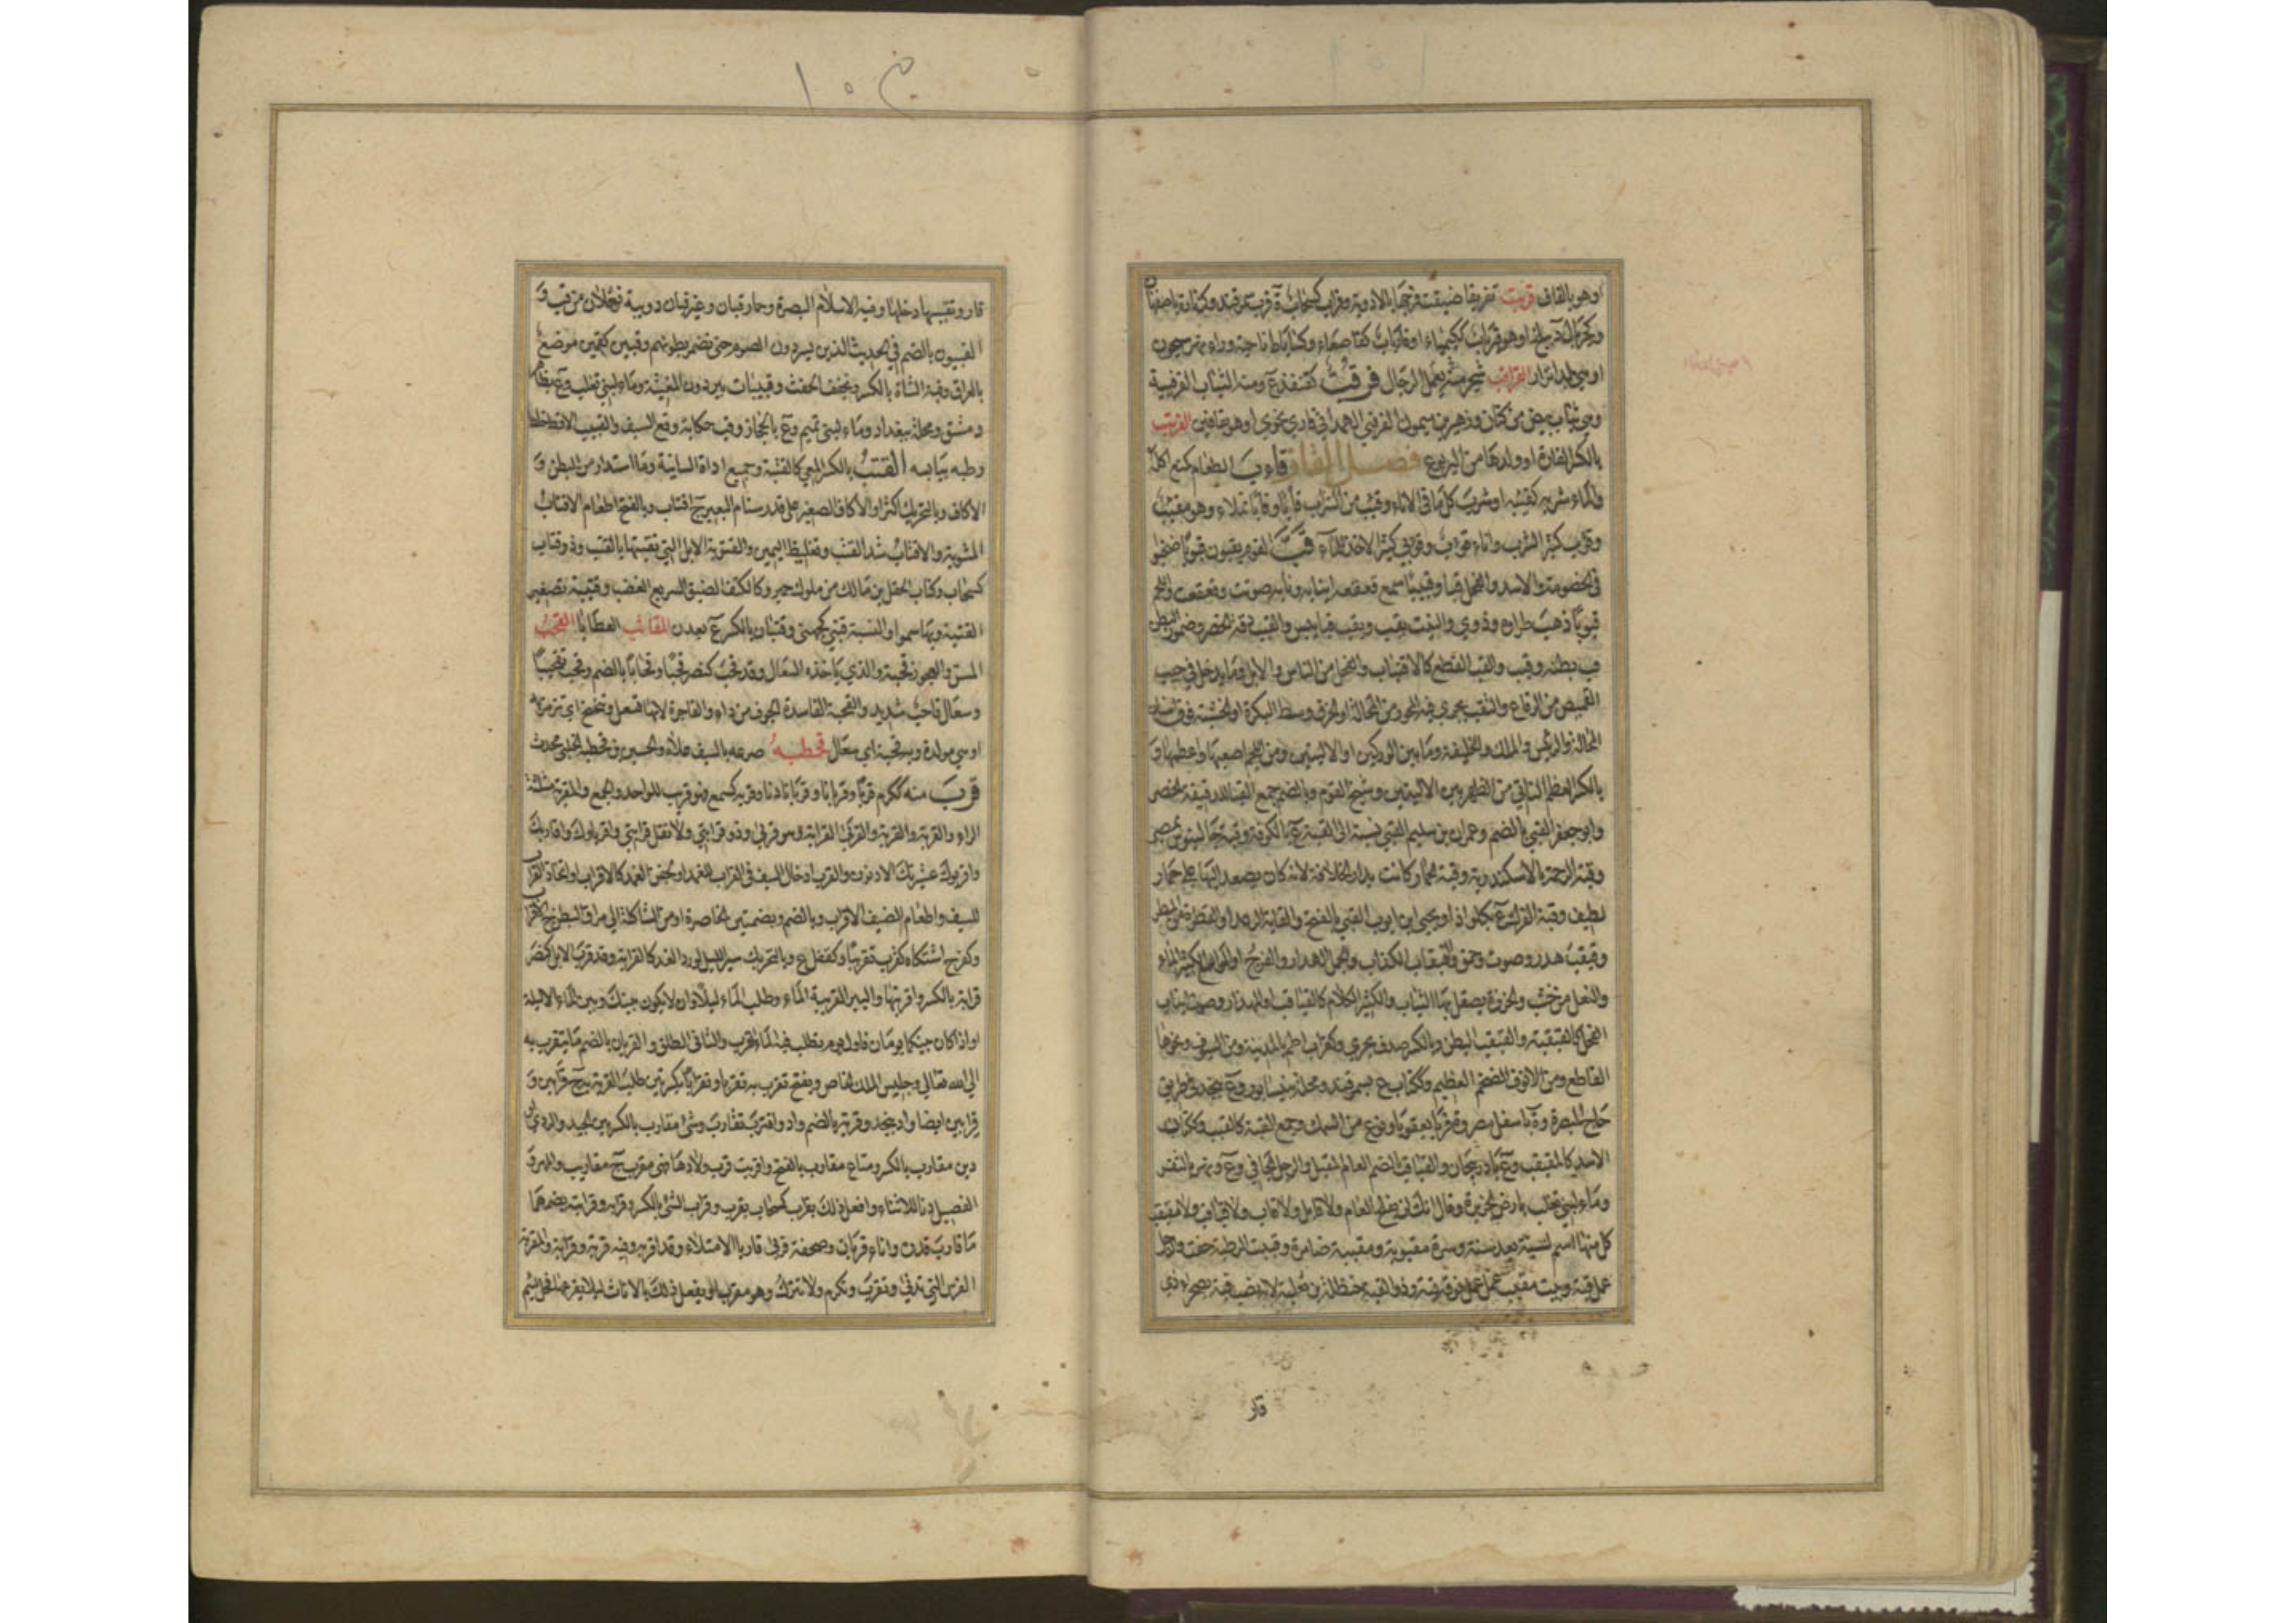 اوهو بالقاف قربت تفريقا ضيقت فرجها بالادوية وفراب كسحاب ة قرب سمرقند وكزنار ة باصفهان
وكجريال ة ببلخ او هو فيرياب ككيمياء او فارياب كقاصعاء وككتاب ناحية وراء نهر سيحون
او هي بلد اترار شجر مثه يعمل الرجال فرقب كقنفذ ع ومنه الثياب الفرقبية
وهي ثياب بيض من كتان وزهير بن ميمون الفرقبي الهمداني قاري نحوي او هو بقافين الفرنب
بالكسر الفارة او ولدها من اليربوع فصل القاف قاب الطعام كمنع اكله
والماء شربه كقئبه او شرب كل ما في الاناء وقئب من الشراب قأبا وقأبا تملاء وهو مقئب
وقؤوب كثير الشرب واناء قوأب وقوأبي كثير الاخذ للماء قب القوم يقبون قبوبا ضجوا
في الخصومة والاسد والفحل قبا وقبيبا سمع قعقعة انيابه ونابه صوتت وقعقعت واللحم
قبوبا ذهب طراوه وذوي والنبت يقب ويقب قبا يبس والقبب دقة الخصر وضمور البطن
قب بطنه وقبب والقب القطع كالاقتباب والفحل من الناس والابل وما يدخل في جيب
القميص من الرقاع والثقب يجري فيه المحور من المحالة او الخرق وسط البكرة او الخشبة فوق اسنان
المحالة والرئيس والملك والخليفة وما بين الوركين او الاليتين ومن اللجم اصعبها واعظمها و
بالكسر العظم الناتي من الظهر بين الاليتين وشيخ القوم وبالضم جمع القباء للدقيقة الخصر
وابو جعفر القبي بالضم وعمران بن سليم القبي نسبة الى القبة ع بالكوفة وقبة جالينوس بمصر
وقبة الرحمة بالاسكندرية وقبة الحمار كانت بدار الخلافة لانه كان يصعد اليها على حمار
لطيف وقبة الفرك ع بكلواذا ويحيى بن ايوب القبي بالفتح والقابة الرعد او القطرة من المطر
وقبقب هدر وصوت وحمق والقبقاب الكذاب والجمل الهدار والفرج او الواسع الكثير الماء
والنعل من خشب والخرزة يصقل بها الثياب والكثير الكلام كالقباقب او المهذار وصوت انياب
الفحل كالقبقبة والقبقب البطن وبالكسر صدف بحري وكغراب اطم بالمدينة ومن السيوف ونحوها
القاطع ومن الانوف الضخم العظيم وككتاب ع بسمرقند ومحلة بنيسابور وع بنجد في طريق
حاج البصرة وة باسفل مصر وة قرب بعقوبا ونوع من السمك وجمع القبة كالقبب وككتان
الاسد كالمقبقب وع باذربيجان والقباقب بالضم العام المقبل والرجل الجافي وع ونهر بالثغر
وماء لبني تغلب بارض الجزيرة وقال انك لن تفلح العام ولا قابل ولا قاب ولا قباقب ولا مقبقب
كل منها اسم لسنة بعد سنة وسرة مقبوبة ومقببة ضامرة وقببت الرطبة جفت والرجل
عمل قبة وبيت مقبب عمل فوقه قبة وذو القبة حنظلة بن ثعلبة لانه نصب قبة بصحراء ذي
قار
١٠٣
قار وتقببها دخلها وقبة الاسلام البصرة وحمار قبان وعير قبان دويبة فعلان من قب و
القبيون بالضم في الحديث الذين يسردون الصوم حتى تضمر بطونهم وقبين كقمين موضع
بالعراق وقبة الشاة بالكسر وتخفف الحفث وقبيبات بئر دون المغيثة وماء لبني تغلب وع بظاهر
دمشق ومحلة ببغداد وماء لبني تميم وع بالحجاز وقب حكاية وقع السيف والقبيب الاقط خلط
رطبه بيابسه القتب بالكسر المعي كالقتبة وجميع اداة السانية وما استدار من البطن و
الاكاف وبالتحريك اكثر او الاكاف الصغير على قدر سنام البعير ج اقتاب وبالفتح اطعام الاقتاب
المشوية والاقتاب شد القتب وتغليظ اليمين والقتوبة الابل التي تقتبها بالقتب وذو قتاب
كسحاب وكتاب الحقل بن مالك من ملوك حمير وكالكتف الضيق السريع الغضب وقتيبة تصغير
القتبة وبها سموا والنسبة قتبي كجهني وقتبان بالكسر ع بعدن المقاثب العطايا القحب
المسن والعجوز قحبة والذي ياخذه السعال وقد قحب كنصر قحبا وقحابا بالضم وقحب تقحيبا
وسعال قاحب شديد والقحبة الفاسدة الجوف من داء والفاجرة لانها تسعل وتنحنح اي ترمز به
او هي مولدة وبه قحبة اي سعال قحطبه صرعه بالسيف علاه والحسين بن قحطبة الحلبي محدث
قرب منه ككرم قربا وقربانا وقربانا دنا وقربه كسمع فهو قريب للواحد والجمع والمقربة مثلثة
الراء والقربة والقربة والقربى القرابة وهو قريبي وذو قرابتي ولا تقل قرابتي واقرباوك واقاربك
واقربوك عشيرتك الادنون والقرب ادخال السيف في القراب للغمد او لجفن الغمد كالاقراب او اتخاذ القراب
للسيف واطعام الضيف الاقراب وبالضم وبضمتين الخاصرة او من الشاكلة الى مراق البطن ج اقراب
وكفرح اشتكاه كقرب تقريبا وكقفل ع وبالتحريك سير الليل لورد الغد كالقرابة وقد قرب الابل كنصر
قرابة بالكسر واقربتها والبير القريبة الماء وطلب الماء ليلا او ان لا يكون بينك وبين الماء الا ليلة
او اذا كان بينكما يومان فاول يوم تطلب فيه الماء القرب والثاني الطلق والقربان بالضم ما يتقرب به
الى الله تعالى وجليس الملك الخاص ويفتح تقرب به تقربا وتقرابا بكسرتين طلب القربة به ج قرابين و
قرابين ايضا واد بنجد وقربة بالضم واد واقترب تقارب وشئ مقارب بالكسر بين الجيد والردي او
دين مقارب بالكسر ومتاع مقارب بالفتح واقربت قرب ولادها فهي مقرب ج مقاريب والمهر و
الفصيل دنا للاثناء وافعل ذلك بقراب كسحاب بقرب وقراب الشئ بالكسر وقرابه وقرابته بضمهما
ما قارب قدره واناء قربان وصحفة قربى قاربا الامتلاء وقد اقربه وفيه قربه وقرابه والمقربة
الفرس التي تدنى وتقرب وتكرم ولا تترك وهو مقرب او يفعل ذلك بالاناث ليلا يقرعها فحل لئيم